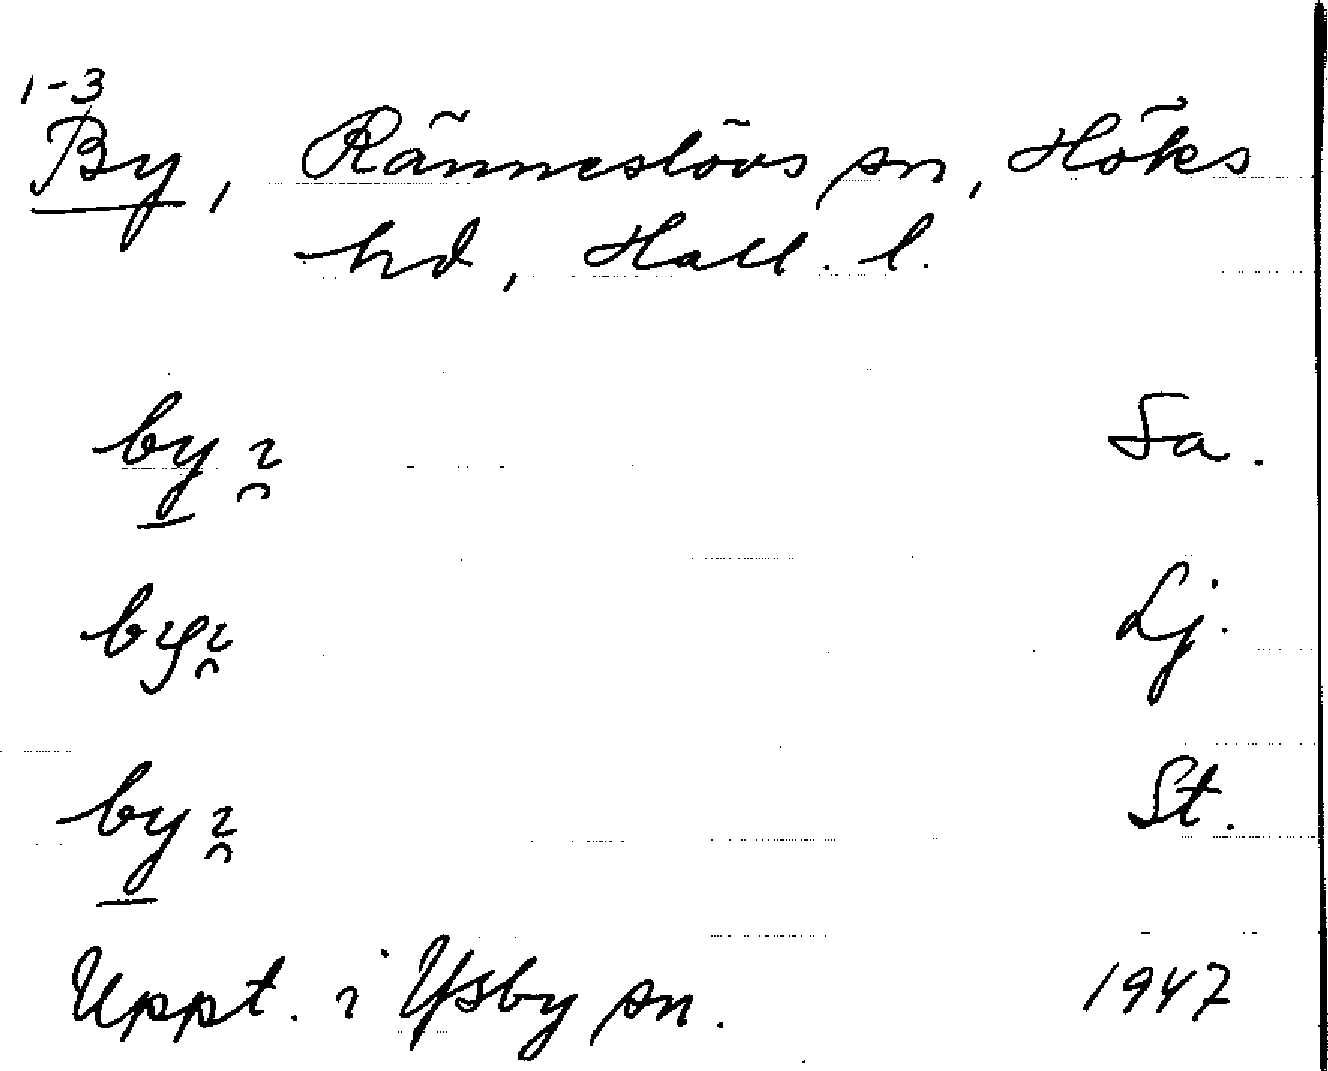 1-3
By, Ränneslövs sn, Höks
hd, Hall. l.
by̱ ı̯ Sa.
byı̯ Lj.
by̱ ı̯ St.
Uppt. i Ysby sn. 1947